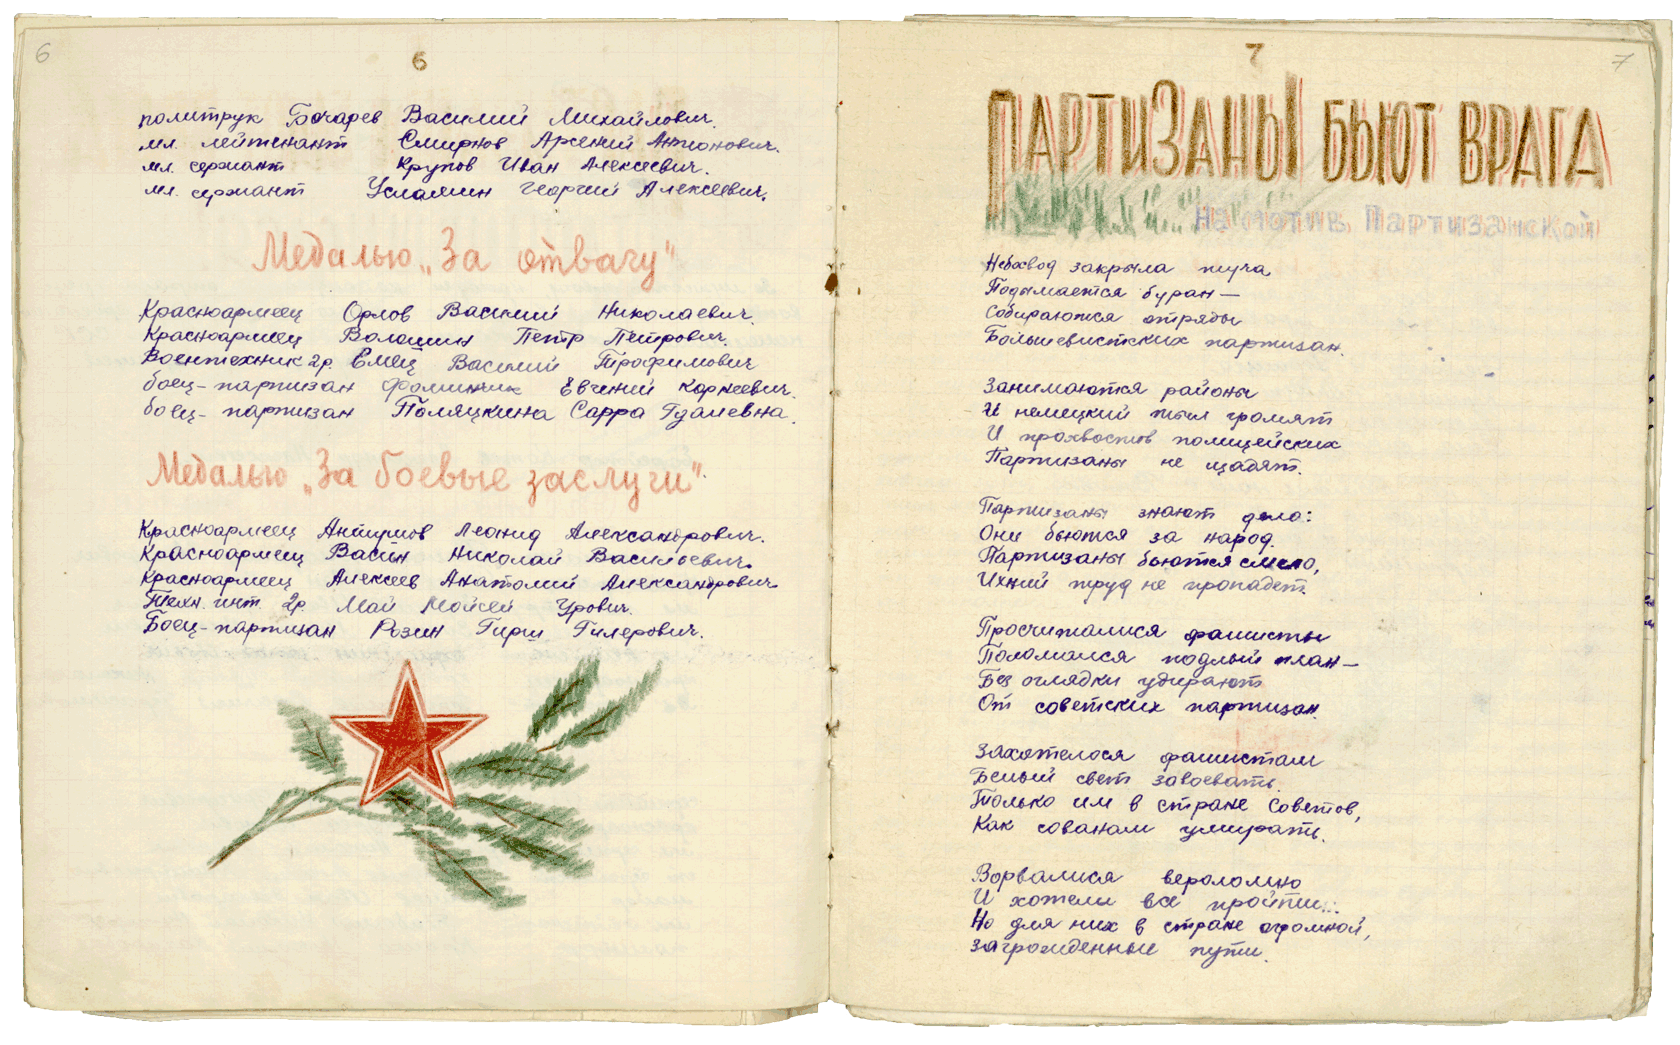 6
6
политрук Бочарев Василий Михайлович.
мл. лейтенант Смирнов Арсений Антонович.
мл. сержант Крупов Иван Алексеевич.
мл. сержант Усламин Георгий Алексеевич.
Медалью „За отвагу"
Красноармеец Орлов Василий Николаевич.
Красноармеец Волошин Петр Петрович.
Воентехник 2р. Емец Василий Трофимович
боец-партизан Евгений Корнеевич.
боец-партизан Поляцкина Сарра Гдалевна.
Медалью „За боевые заслуги".
Красноармеец Антушов Леонид Александрович.
Красноармеец Васин Николай Васильевич.
Красноармеец Алексеев Анатолий Александрович.
Техн. инт. 2р. Май Мойсей Урович.
Боец-партизан Розин Гирш Гилерович.
7
7
ПАРТИЗАНЫ БЬЮТ ВРАГА
на мотив Партизанской
Небосвод закрыла туча
Подымается буран—
Собираются отряды
Большевистских партизан.
Занимаются районы
И немецкий тыл громят
И прохвостов полицейских
Партизаны не щадят.
Партизаны знают дело:
Они бьются за народ.
Партизаны бьются смело,
Ихний труд не пропадет.
Просчиталися фашисты
Поломался подлый план—
Без оглядки удирают
От советских партизан.
Захотелося фашистам
Белый свет завоевать.
Только им в стране Советов,
Как собакам умирать.
Ворвалися вероломно
И хотели все пройти...
Но для них в стране огромной,
Загражденные пути.